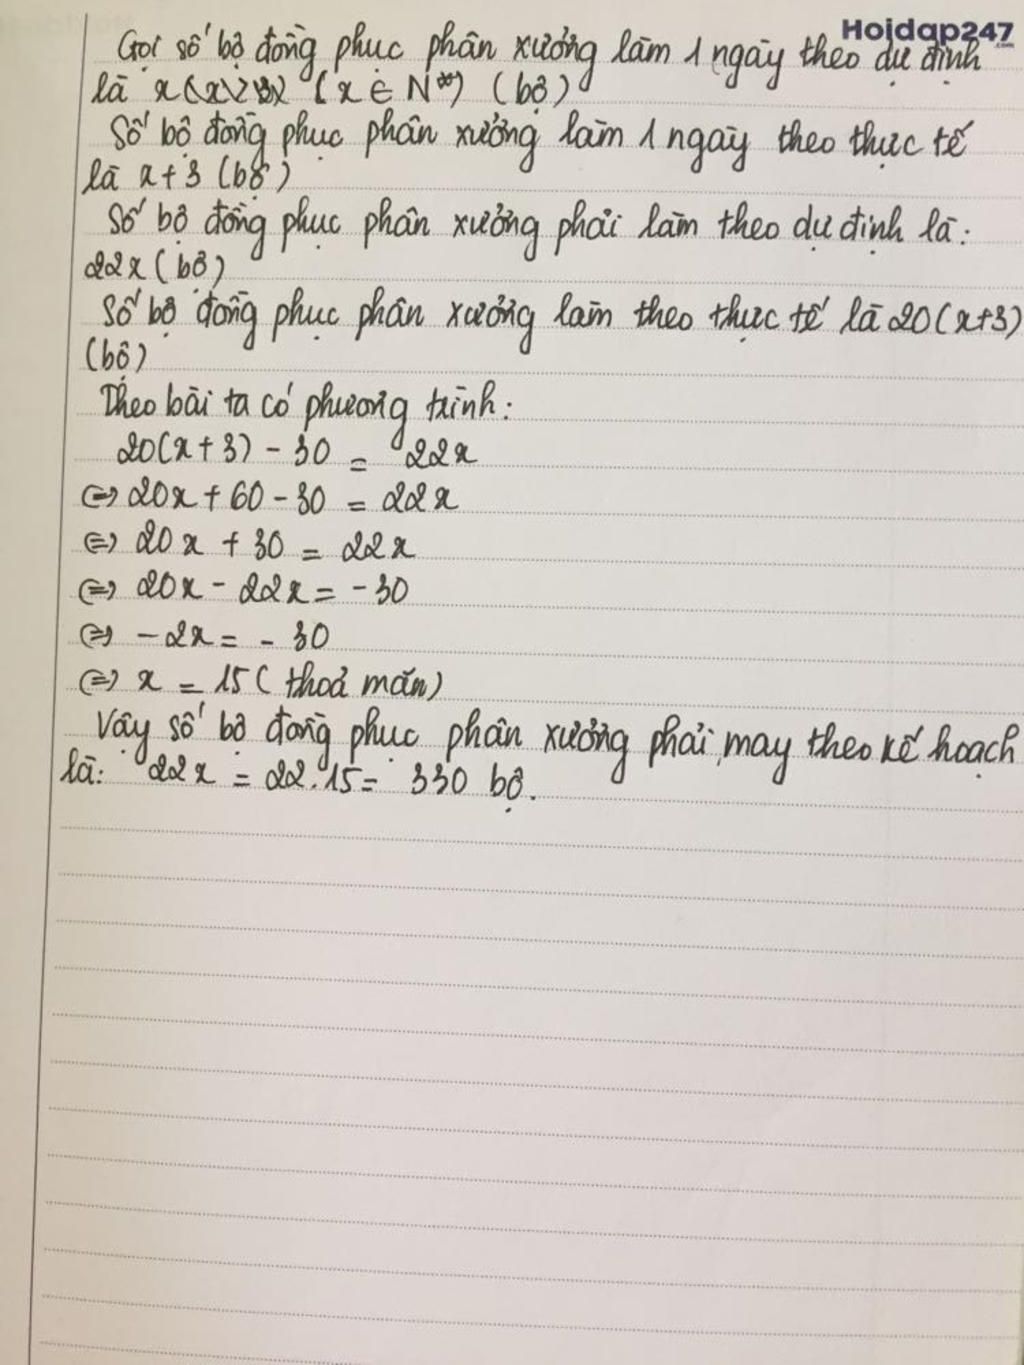 Hoidap247
.com
Gọi số bộ đồng phục phân xưởng làm 1 ngày theo dự định
là x (x ∈ N*) (bộ)
Số bộ đồng phục phân xưởng làm 1 ngày theo thực tế
là x+3 (bộ)
Số bộ đồng phục phân xưởng phải làm theo dự định là:
22x (bộ)
Số bộ đồng phục phân xưởng làm theo thực tế là 20(x+3)
(bộ)
Theo bài ta có phương trình:
20(x+3) - 30 = 22x
⇔ 20x + 60 - 30 = 22x
⇔ 20x + 30 = 22x
⇔ 20x - 22x = -30
⇔ -2x = -30
⇔ x = 15 (thoả mãn)
Vậy số bộ đồng phục phân xưởng phải may theo kế hoạch
là: 22x = 22.15 = 330 bộ.